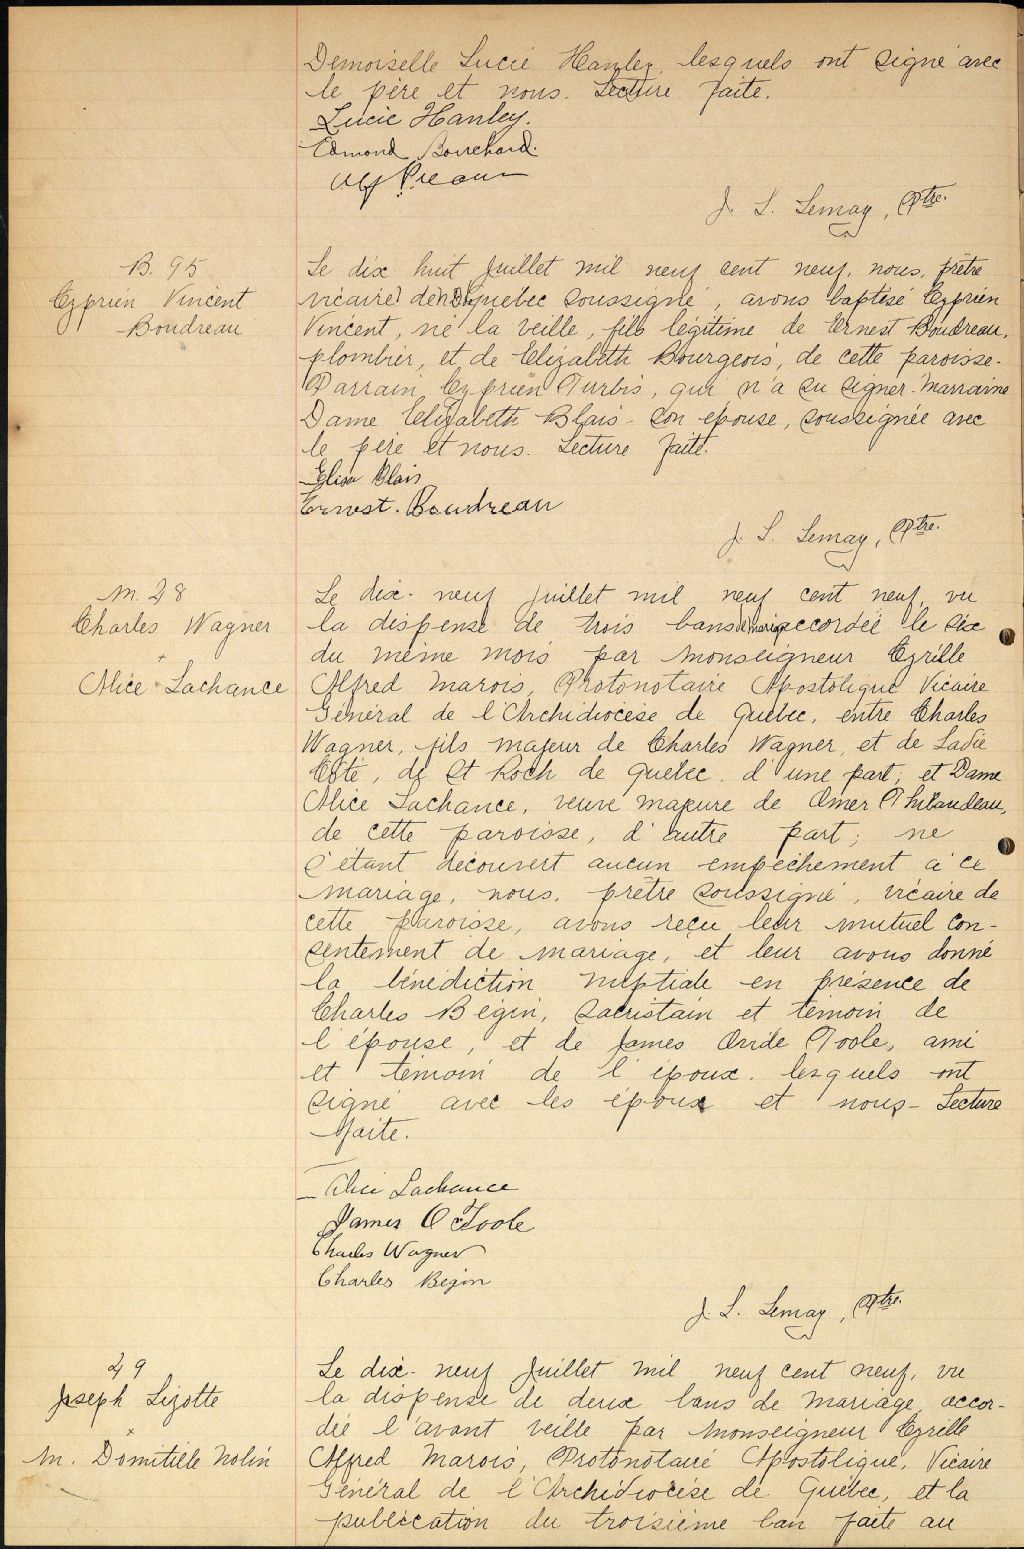 Demoiselle Lucie Hanley, lesquels ont signé avec
le père et nous. Lecture faite.
Lucie Hanley.
Edmond Bouchard.
J. S. Lemay, Ptre.
B. 95
Cyprien Vincent
Boudreau
Le dix huit Juillet mil neuf cent neuf, nous, prêtre
vicaire de N.D. Québec soussigné, avons baptisé Cyprien
Vincent, né la veille, fils légitime de Ernest Boudreau,
plombier, et de Elizabeth Bourgeois, de cette paroisse.
Parrain Cyprien Turbis, qui n'a su signer. Marraine
Dame Elizabeth Blais son épouse, soussignée avec
le père et nous. Lecture faite.
Elisa Blais
Ernest. Boudreau
J. S. Lemay, Ptre.
M. 28
Charles Wagner
+
Alice Lachance
Le dix-neuf Juillet mil neuf cent neuf, vu
la dispense de trois bans de mariage accordée le six
du même mois par Monseigneur Cyrille
Alfred Marois, Protonotaire Apostolique Vicaire
Général de l'Archidiocèse de Québec, entre Charles
Wagner, fils majeur de Charles Wagner, et de Ladie
Côté, de St Roch de Québec, d'une part; et Dame
Alice Lachance, veuve majeure de Omer Thibaudeau,
de cette paroisse, d'autre part; ne
s'étant découvert aucun empêchement à ce
mariage, nous, prêtre soussigné, vicaire de
cette paroisse, avons reçu leur mutuel con-
sentement de mariage, et leur avons donné
la bénédiction nuptiale en présence de
Charles Bégin, sacristain et témoin de
l'épouse, et de James Ovide Toole, ami
et témoin de l'époux, lesquels ont
signé avec les époux et nous - Lecture
faite.
Alice Lachance
James O'Toole
Charles Wagner
Charles Begin
J. S. Lemay, Ptre.
29
Joseph Lizotte
+
M. Domitille Nolin
Le dix-neuf Juillet mil neuf cent neuf, vu
la dispense de deux bans de mariage, accor-
dée l'avant veille par Monseigneur Cyrille
Alfred Marois, Protonotaire Apostolique, Vicaire
Général de l'Archidiocèse de Québec, et la
publication du troisième ban faite au